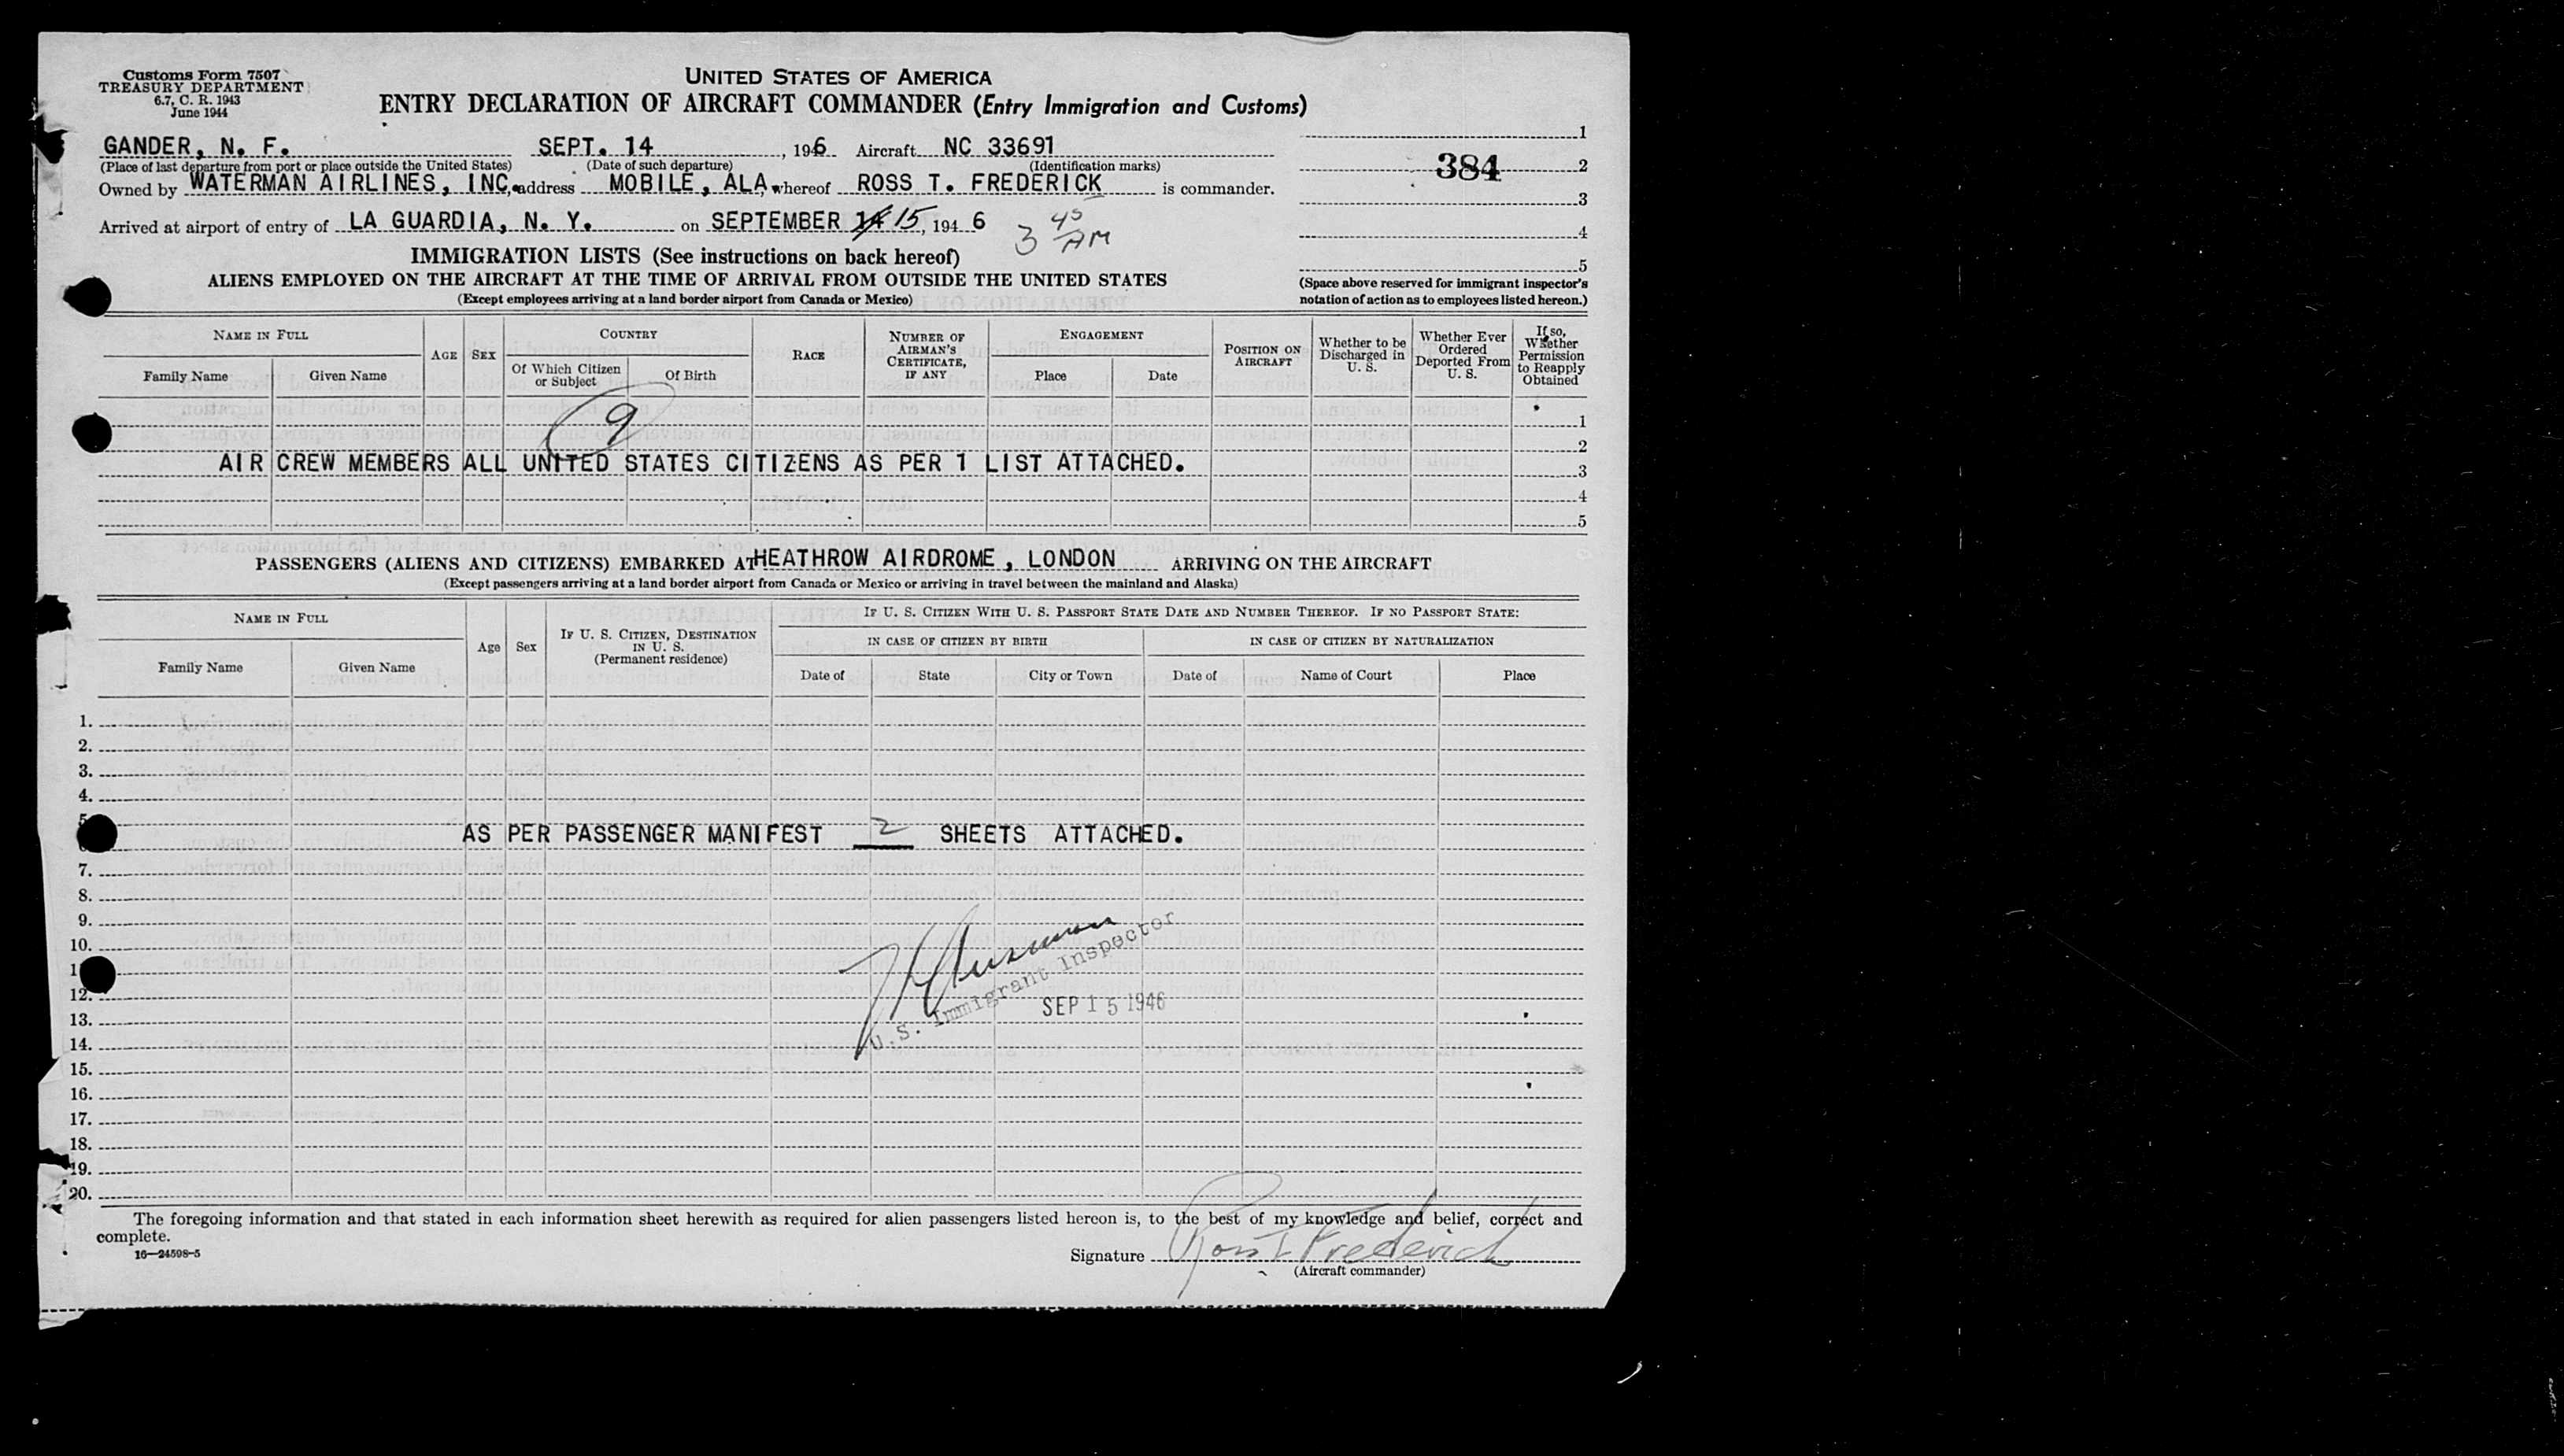 Customs Form 7507
TREASURY DEPARTMENT
6.7, C. R. 1943
June 1944
UNITED STATES OF AMERICA
ENTRY DECLARATION OF AIRCRAFT COMMANDER (Entry Immigration and Customs)
GANDER, N. F. SEPT. 14, 1946 Aircraft NC 33691
(Place of last departure from port or place outside the United States) (Date of such departure) (Identification marks)
Owned by WATERMAN AIRLINES, INC. address MOBILE, ALA, whereof ROSS T. FREDERICK is commander.
Arrived at airport of entry of LA GUARDIA, N. Y. on SEPTEMBER 14 15, 194 6
3 45 AM
1
384
2
3
4
5
(Space above reserved for immigrant inspector's
notation of action as to employees listed hereon.)
IMMIGRATION LISTS (See instructions on back hereof)
ALIENS EMPLOYED ON THE AIRCRAFT AT THE TIME OF ARRIVAL FROM OUTSIDE THE UNITED STATES
(Except employees arriving at a land border airport from Canada or Mexico)
NAME IN FULL
Family Name Given Name
AGE SEX
COUNTRY
Of Which Citizen or Subject Of Birth
RACE
NUMBER OF AIRMAN'S CERTIFICATE, IF ANY
ENGAGEMENT
Place Date
POSITION ON AIRCRAFT
Whether to be Discharged in U. S.
Whether Ever Ordered Deported From U. S.
If so, Whether Permission to Reapply Obtained
1
9
2
AIR CREW MEMBERS ALL UNITED STATES CITIZENS AS PER 1 LIST ATTACHED.
3
4
5
PASSENGERS (ALIENS AND CITIZENS) EMBARKED AT HEATHROW AIRDROME, LONDON ARRIVING ON THE AIRCRAFT
(Except passengers arriving at a land border airport from Canada or Mexico or arriving in travel between the mainland and Alaska)
NAME IN FULL
Family Name Given Name
Age Sex
IF U. S. CITIZEN, DESTINATION IN U. S.
(Permanent residence)
IF U. S. CITIZEN WITH U. S. PASSPORT STATE DATE AND NUMBER THEREOF. IF NO PASSPORT STATE:
IN CASE OF CITIZEN BY BIRTH IN CASE OF CITIZEN BY NATURALIZATION
Date of State City or Town Date of Name of Court Place
1.
2.
3.
4.
5
AS PER PASSENGER MANIFEST 2 SHEETS ATTACHED.
7.
8.
9.
10.
1
12.
13.
14.
15.
16.
17.
18.
19.
20.
U.S. Immigrant Inspector
SEP 15 1946
The foregoing information and that stated in each information sheet herewith as required for alien passengers listed hereon is, to the best of my knowledge and belief, correct and
complete.
16—24598-5
Signature Ross T Frederick
(Aircraft commander)